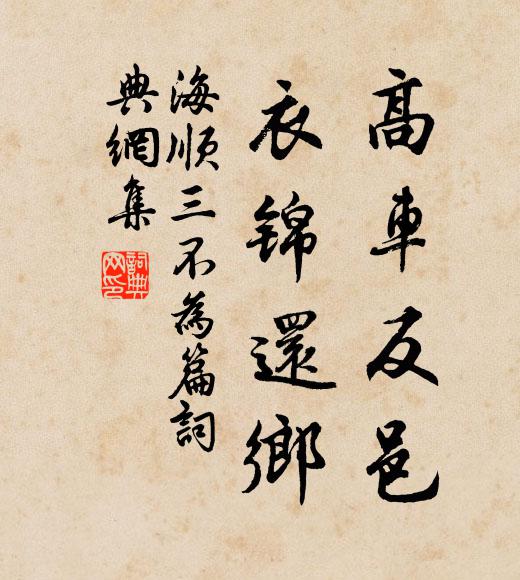 高車反邑
衣錦還鄉
海順三不為篇詞
典網集
詞典
网印